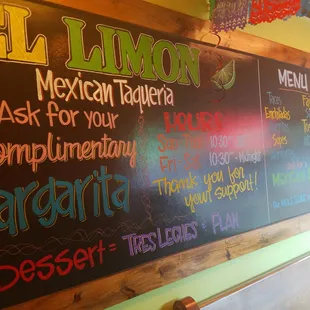 EL LIMON
Mexican Taqueria
Ask for your
Complimentary
Margarita
Dessert = TRES LECHES = FLAN
HOURS
10:30
Fri 10:30 - Midnight
Thank you for
your support!
MENU
Tacos
Enchiladas
Sopes